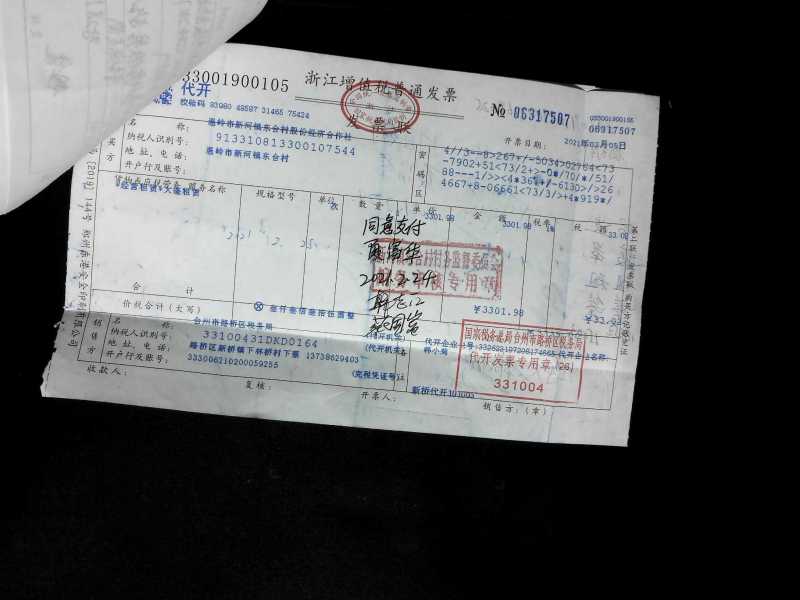 33001900105 浙江增值税普通发票 No 06317507 033001900105
代开 06317507
校验码 93980 49587 31465 75424 发票联 开票日期: 2021年02月05日
名 称: 温岭市新河镇东合村股份经济合作社
纳税人识别号: 913310813300107544
地 址、电 话: 温岭市新河镇东合村
开户行及账号:
购买方
密码区
4//3--8>267+/-5034>02764<73
-7902+51<73/2+>-0*/70/*/51/
88---1/>><<4*36*+/-6130>/>26
4667+8-06661<73/3/>+4*919*/
货物或应税劳务、服务名称 规格型号 单位 数量 单价 金额 税率 税额
*经营租赁*大篷租赁 次 3301.98 3301.98 1% 33.02
同意支付
2021.2.24
合 计 ¥3301.98 ¥33.02
价税合计(大写) ⊗叁仟叁佰叁拾伍圆整
名 称: 台州市路桥区税务局 (代开机关)
纳税人识别号: 33100431DKD0164 (代开机关)
地 址、电 话: 路桥区新桥镇下林桥村下蔡 13738629403
开户行及账号: 333006210200059255 (完税凭证号)
销售方
备注
代开企业名称: 韩小局
新桥代开
国家税务总局台州市路桥区税务局
代开发票专用章(26)
331004
收款人: 复核: 开票人: 销售方:(章)
第二联:发票联 购买方记账凭证